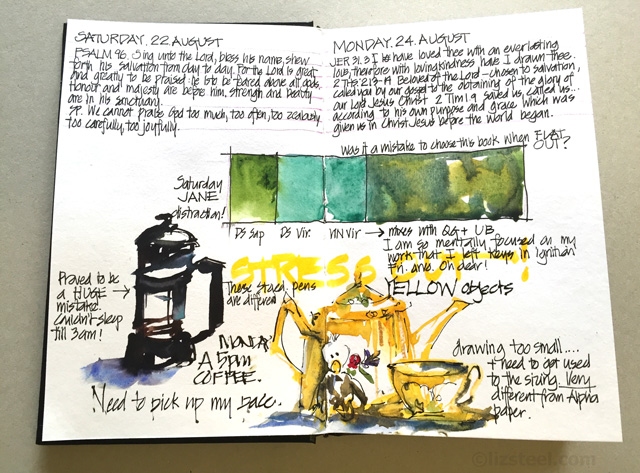 SATURDAY. 22. AUGUST
PSALM 96. Sing unto the Lord, bless his name, shew
forth his salvation from day to day. For the Lord is great
and greatly to be praised: he is to be feared above all gods.
Honour and majesty are before him, strength and beauty
are in his sanctuary.
SP. We cannot praise God too much, too often, too zealously
too carefully, too joyfully.
MONDAY. 24. AUGUST
JER 31.3 I have loved thee with an everlasting
love, therefore with lovingkindness have I drawn thee.
2 THS 2.13-14 Beloved of the Lord - chosen to salvation,
called you by our gospel to the obtaining of the glory of
our Lord Jesus Christ 2 Tim 1.9 saved us, called us...
according to his own purpose and grace which was
given us in Christ Jesus before the world began.
was it a mistake to choose this book when FLAT
OUT?
Saturday
JANE
distraction!
DS Sap
DS Vir
WN Vir → mixes with QG + UB
I am so mentally focused on my
work that I left keys in ignition
Fri. and. Oh dear!
STRESS
These staed. pens
are different
YELLOW objects
Proved to be
a HUGE →
mistake.
Couldn't sleep
till 3am!
MONDAY
A 5pm
COFFEE.
Need to pick up my pace.
drawing too small....
+ need to get used
to the sizing. Very
different from Alpha
paper.
©lizsteel.com